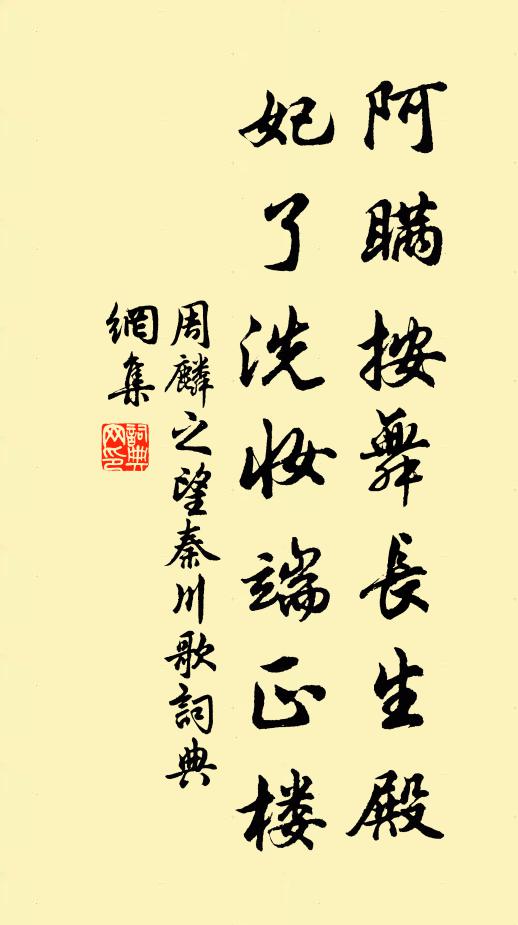 阿瞞按舞長生殿
妃了洗妆端正楼
周麟之望秦川歌詞典
網集
詞典
网印